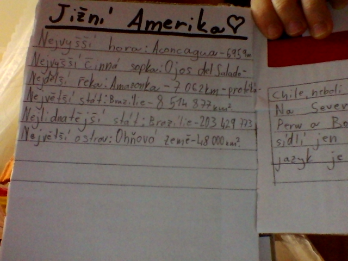 Jižní Amerika♡
Nejvyšší hora: Aconcagua - 6959m
Nejvyšší činná sopka: Ojos del Salado
Nejdelší řeka: Amazonka - 7 062 km -
Největší stát: Brazílie - 8 514 877 km²
Nejlidnatější stát: Brazílie - 203 429 773
Největší ostrov: Ohňová země - 48 000 km²
Chile, neboli
Na Severu
Peru a Bo
sídlí jen
jazyk je